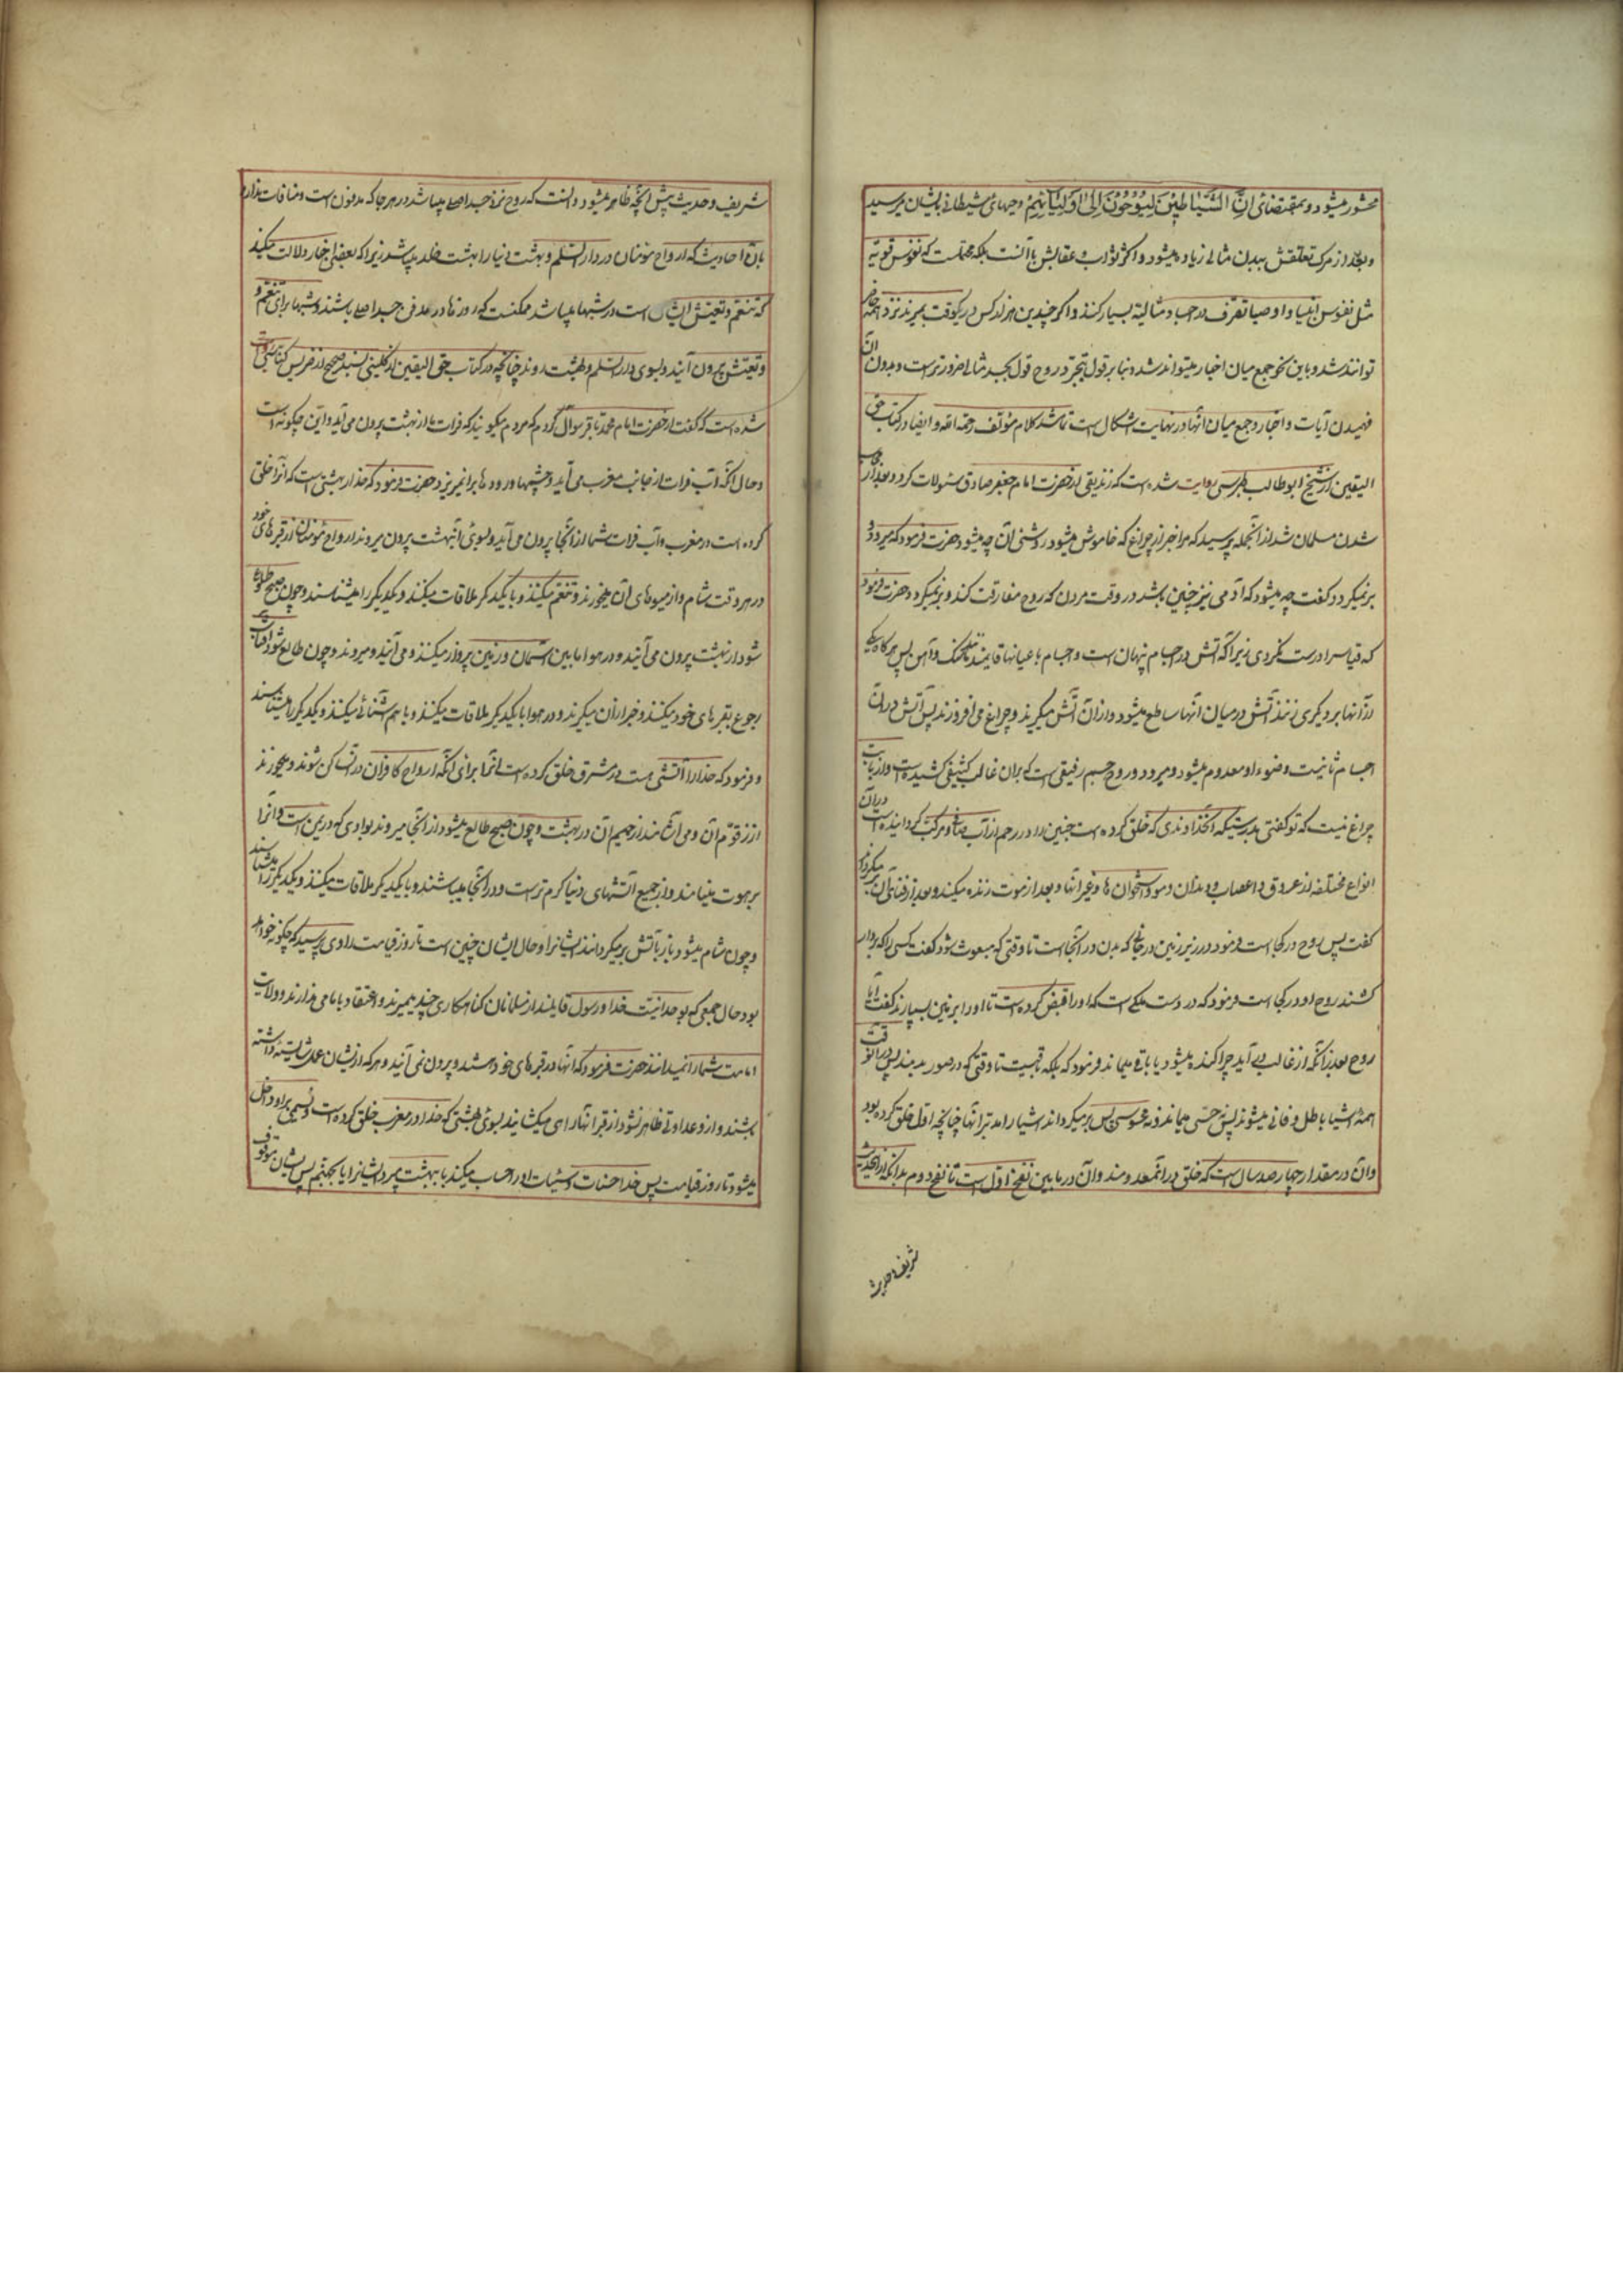 محشور میشود و بمقتضای اِنَّ الشَّیَاطِینَ لَیُوحُونَ اِلیٰ اَوْلِیَائِهِمْ وحیهای شیطانی بایشان میرسد
و بعد از مرک تعلقش ببدن مثالی زیاده میشود و اکثر ثواب و عقابش باآنست بلکه محتملست که نفوس قویه
مثل نفوس انبیا و اوصیا تصرف در اجساد مثالیه بسیار کنند و اکر چندین هزار کس در یکوقت بمیرند نزد همه حاضر
توانند شد و باین نحو جمع میان اخبار میتواند شد و بنا بر قول بتجرد روح قول بجسد مثالی ضرورتر است و بدون آن
فهمیدن آیات و اخبار و جمع میان آنها در نهایت اشکال است تمام شد کلام مؤلف رحمه الله و ایضا در کتاب حق
الیقین از شیخ ابوطالب طبرسی روایت شده است که زندیقی از حضرت امام جعفر صادق سئولات کرد و بعد از جواب
شدن مسلمان شد از آنجمله پرسید که مرا خبر ده از چراغ که خاموش میشود روشنی آن چه میشود حضرت فرمود که میرود و
برنمیکردد گفت چه میشود که آدمی نیز چنین باشد در وقت مردن که روح مفارقت کند و برنمیکردد حضرت فرمود
که قیاس را درست نکردی زیرا که آتش در اجسام پنهان است و اجسام باعیانها قایمند مانند سنک و آهن پس هرکاه یکی
از آنها بر دیکری زنند آتش در میان آنها ساطع میشود و از آن آتش میکیرند و چراغ می افروزند پس آتش در آن
اجسام ثابتست و ضوء او معدوم میشود و میرود و روح جسم رقیقی است که بران قالب کثیفی کشیده است و از بابت
چراغ نیست که تو کفتی بدرستیکه آنخداوندی که خلق کرده است جنین را در رحم از آب صافی و مرکب کردانیده است در آن
انواع مختلفه از عروق و اعصاب و دندان و مو و استخوان ها و غیر آنها و بعد از موت زنده میکند و بعد از فنای آن بر میکرداند
کفت پس روح در کجا است فرمود در زیر زمین در جائی که بدن در آنجا است تا وقتی که مبعوث شود کفت کسی را که بردار
کشند روح او در کجا است فرمود که در دست ملکی است که او را قبض کرده است تا او را بزمین بسپارند کفت آیا
روح بعد از آنکه از قالب بدر آید پراکنده میشود یا باقی میماند فرمود که بلکه باقیست تا وقتی که در صور بدمند پس در آنوقت
همه اشیا باطل و فانی میشوند پس نه حسّی میماند و نه محسوسی پس برمیکرداند اشیا را مدبر آنها چنانچه اول خلق کرده بود
و آن در مقدار چهار صد سال است که خلق در آن معدومند و آن در مابین نفخه اول است تا نفخه دوم بدانکه از اینحدیث
شریف و حدیث
شریف و حدیث پیش آنچه ظاهر میشود دانست که روح نزد جسد اصلی میباشد در هر جا که مدفون است و منافات ندارد
بان احادیث که ارواح مؤمنان در دار السلم و بهشت دنیا را بهشت خلد میباشد زیرا که بعضی اخبار دلالت میکند
که تنعم و تعیش ایشان است در شبها میباشد ممکنست که روزها در مدفن جسد اصلی باشند و شبها برای تنعم و
و تعیش بیرون آیند و بسوی دار السلم و بهشت روند چنانچه در کتاب حق الیقین از کلینی بسند صحیح از ضریس کناسی روایت
شده است که گفت از حضرت امام محمد باقر سوال کردم که مردم میکویند که فرات ما از بهشت بیرون می آید و این چکونه است
و حال آنکه آب فرات از جانب مغرب می آید و چشمها و رودها بر آن میریزد حضرت فرمود که خدا را بهشتی است که آنرا خلق
کرده است در مغرب و آب فرات شما از آنجا بیرون می آید و بسوی آنبهشت بیرون میروند ارواح مؤمنان از قبرهای خود
در هر وقت شام و از میوهای آن میخورند و تنعم میکنند و با یکدیکر ملاقات میکنند و یکدیکر را میشناسند و چون صبح طلوع
شود از بهشت بیرون می آیند و در هوا مابین آسمان و زمین پرواز میکنند و می آیند و میروند و چون طالع شود آفتاب
رجوع بقبرهای خود میکنند و خبر از آن میکیرند و در هوا با یکدیکر ملاقات میکنند و با هم آشنائی میکنند و یکدیکر را میشناسند
و فرمود که خدا را آتشی هست در مشرق خلق کرده است آنرا برای آنکه ارواح کافران در آن ساکن شوند و میخورند
از زقوم آن و می آشامند از حمیم آن در بهشت و چون صبح طالع میشود از آنجا میروند بوادی که در یمن است و آنرا
برهوت مینامند و از جمیع آتشهای دنیا کرم تر است و در آنجا میباشند و با یکدیکر ملاقات میکنند و یکدیکر را میشناسند
و چون شام میشود باز بآتش برمیکردانند ایشانرا و حال ایشان چنین است تا روز قیامت راوی پرسید که چکونه خواهد
بود حال جمعی که بوحدانیت خدا و رسول قایلند از مسلمانان کناهکاری چند میمیرند و اعتقاد بامامی ندارند و ولایت
امامت شما را نمیدانند حضرت فرمود که آنها در قبرهای خود هستند و بیرون نمی آیند و هر که از ایشان عمل شایسته داشته
باشند و از و عداوتی ظاهر نشود از قبر آنها راهی میکشایند بسوی بهشتی که خدا در مغرب خلق کرده است و نسیمی بر او داخل
میشود تا روز قیامت پس خدا حسنات و سیئات او را حساب میکند یا ببهشت میبرد ایشانرا یا بجهنم پس ایشان موقوف